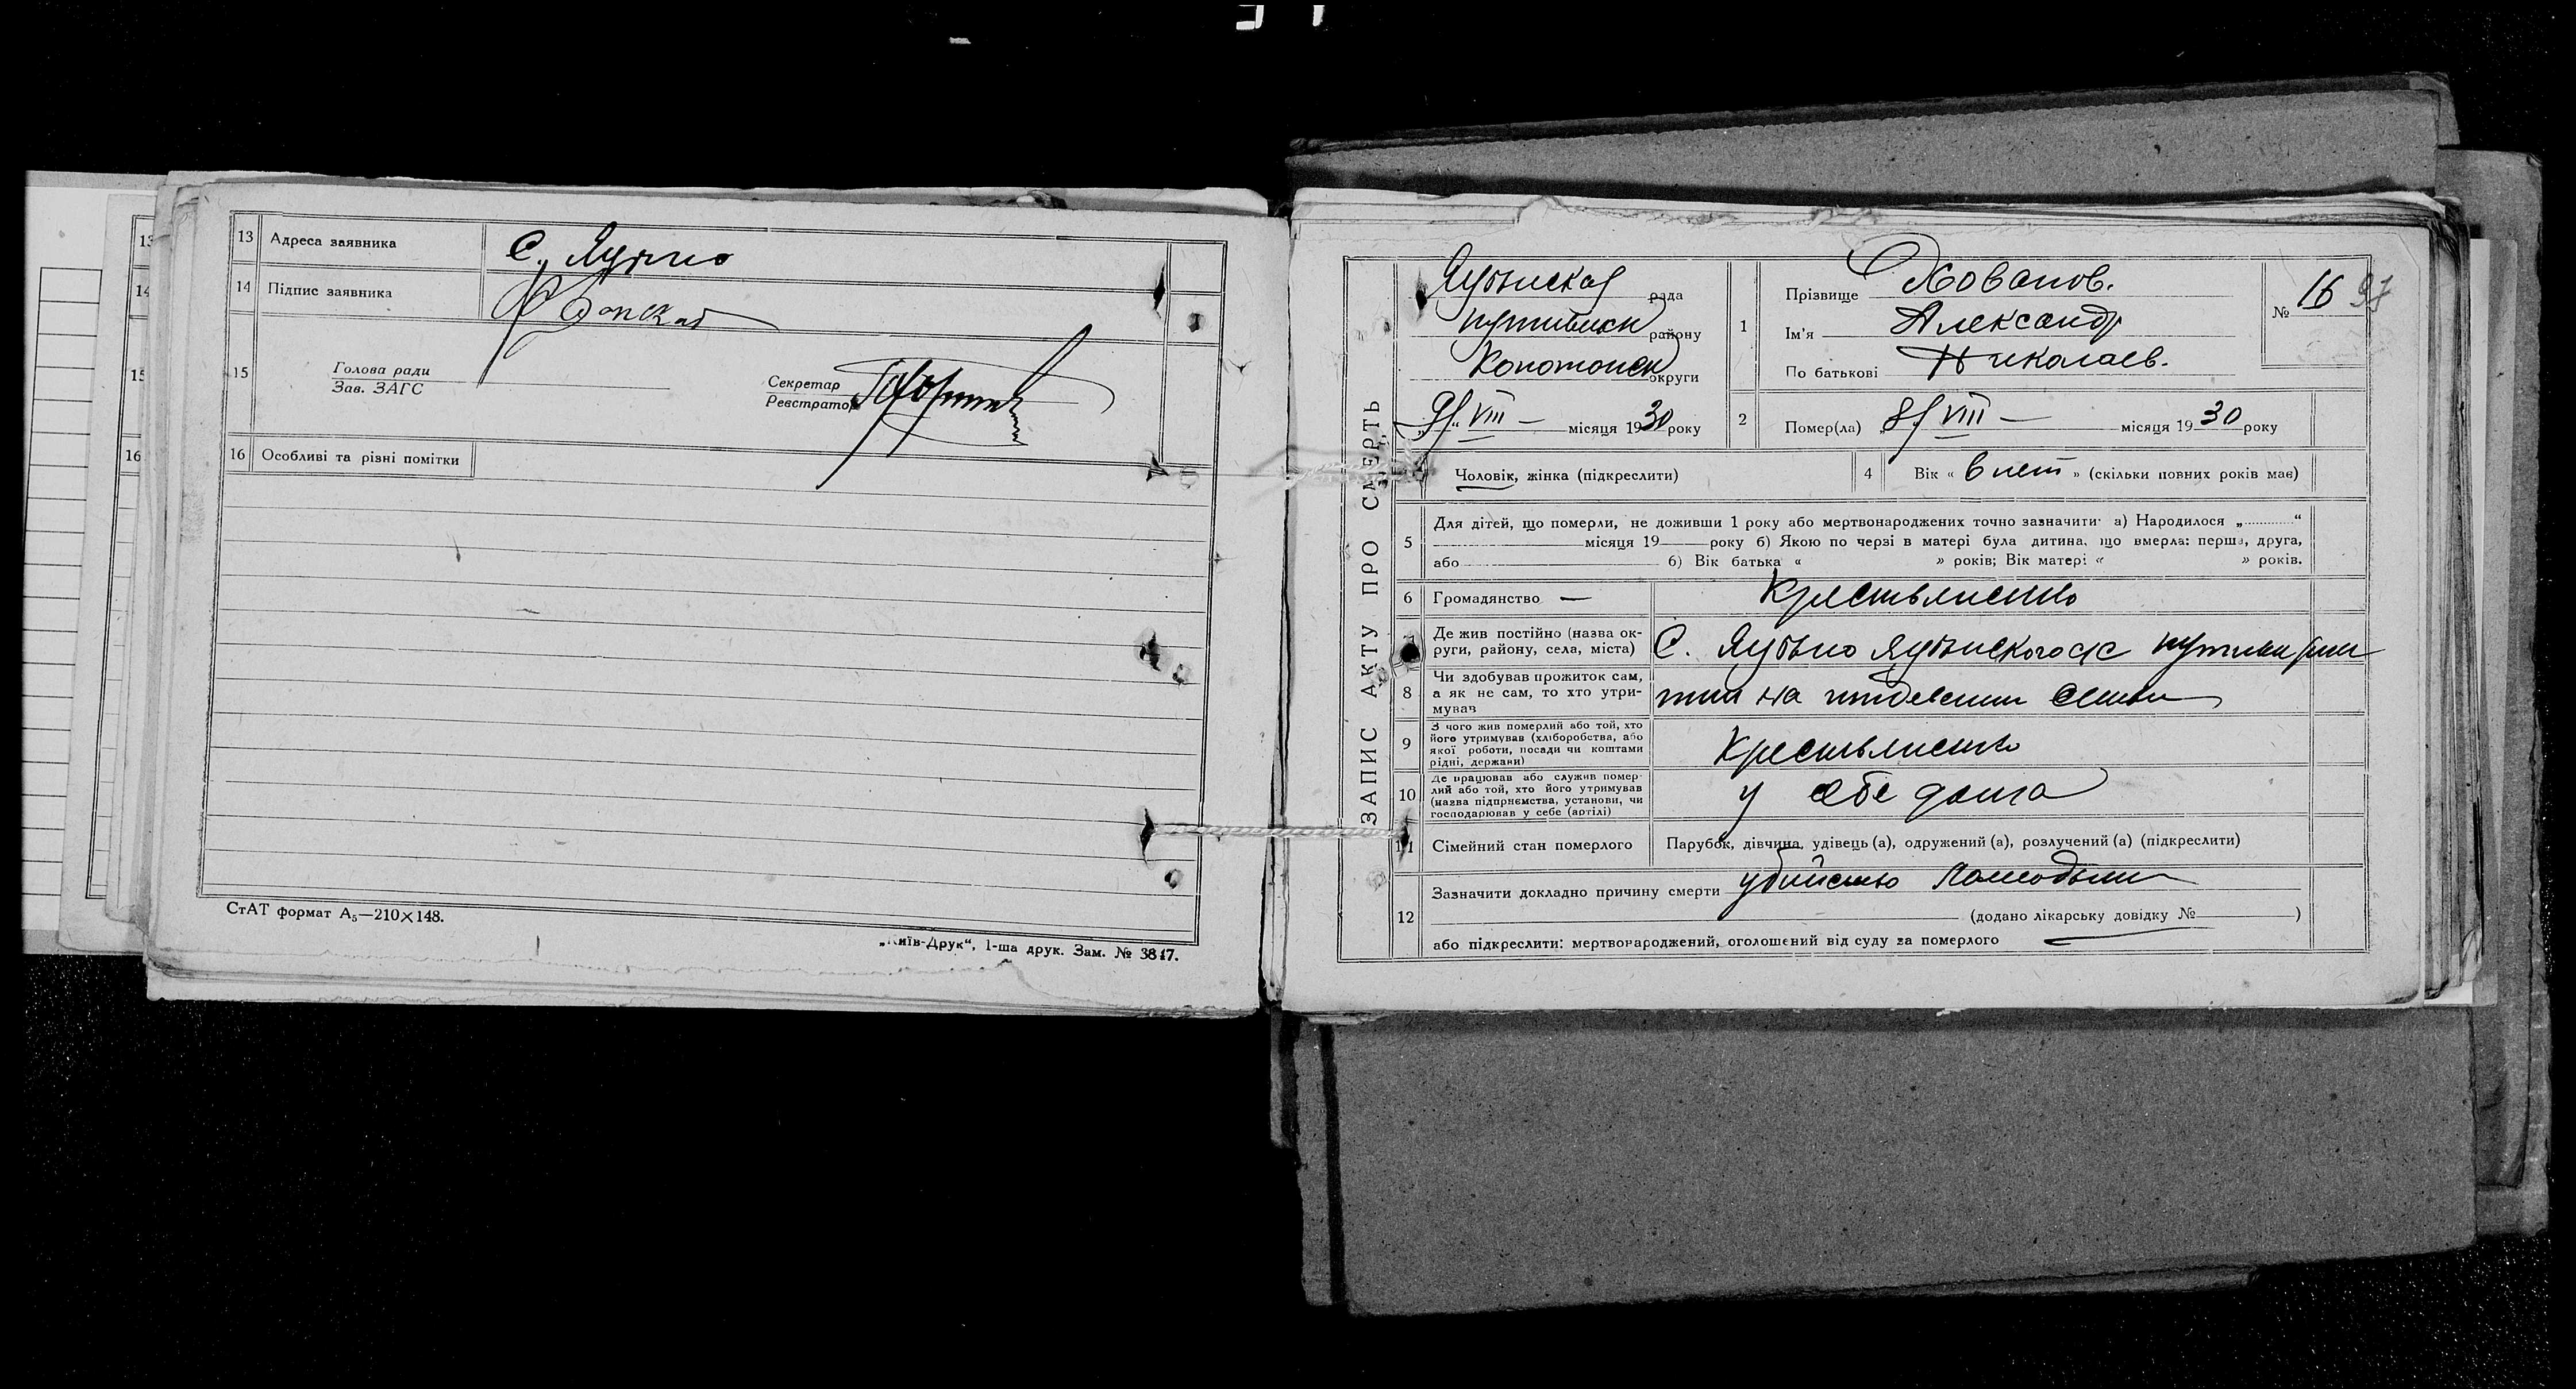 13 Адреса заявника С. Яцыно
14 Підпис заявника
15 Голова ради
Зав. ЗАГС
Секретар
Реєстратор
16 Особливі та різні помітки
СтАТ формат А₅—210×148.
„Київ-Друк“, 1-ша друк. Зам. № 3847.
ЗАПИС АКТУ ПРО СМЕРТЬ
рада
района
Конотопск округи
„9“ VIII — місяця 1930 року
1 Прізвище Хованов.
Ім'я Александр
По батькові Николаев.
№ 16 97
2 Помер(ла) „8“ VIII — місяця 1930 року
Чоловік, жінка (підкреслити)
4 Вік « 6 лет » (скільки повних років має)
5 Для дітей, що померли, не доживши 1 року або мертвонароджених точно зазначити: а) Народилося „ “
місяця 19 року б) Якою по черзі в матері була дитина, що вмерла: перша, друга,
або б) Вік батька « » років; Вік матері « » років.
6 Громадянство —
7 Де жив постійно (назва ок-
руги, району, села, міста) С.
8 Чи здобував прожиток сам,
а як не сам, то хто утри-
мував
9 З чого жив померлий або той, хто
його утримував (хліборобства, або
якої роботи, посади чи коштами
рідні, держави)
10 Де працював або служив помер-
лий або той, хто його утримував
(назва підприємства, установи, чи
господарював у себе (артілі) у себе дома
11 Сімейний стан померлого Парубок, дівчина, удівець (а), одружений (а), розлучений (а) (підкреслити)
12 Зазначити докладно причину смерти убийство
(додано лікарську довідку № )
або підкреслити: мертвонароджений, оголошений від суду за померлого